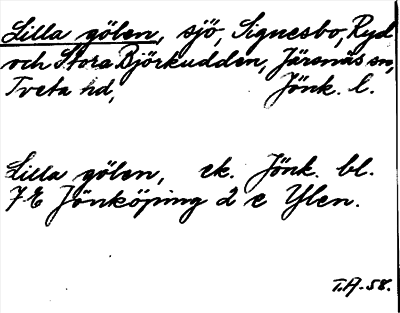 Lilla gölen, sjö, Signesbo, Ryd
och Stora Björkudden, Järsnäs sn,
Tveta hd, Jönk. l.
Lilla gölen, ek. Jönk. bl.
7 E Jönköping 2 e Ylen.
T.A-58.